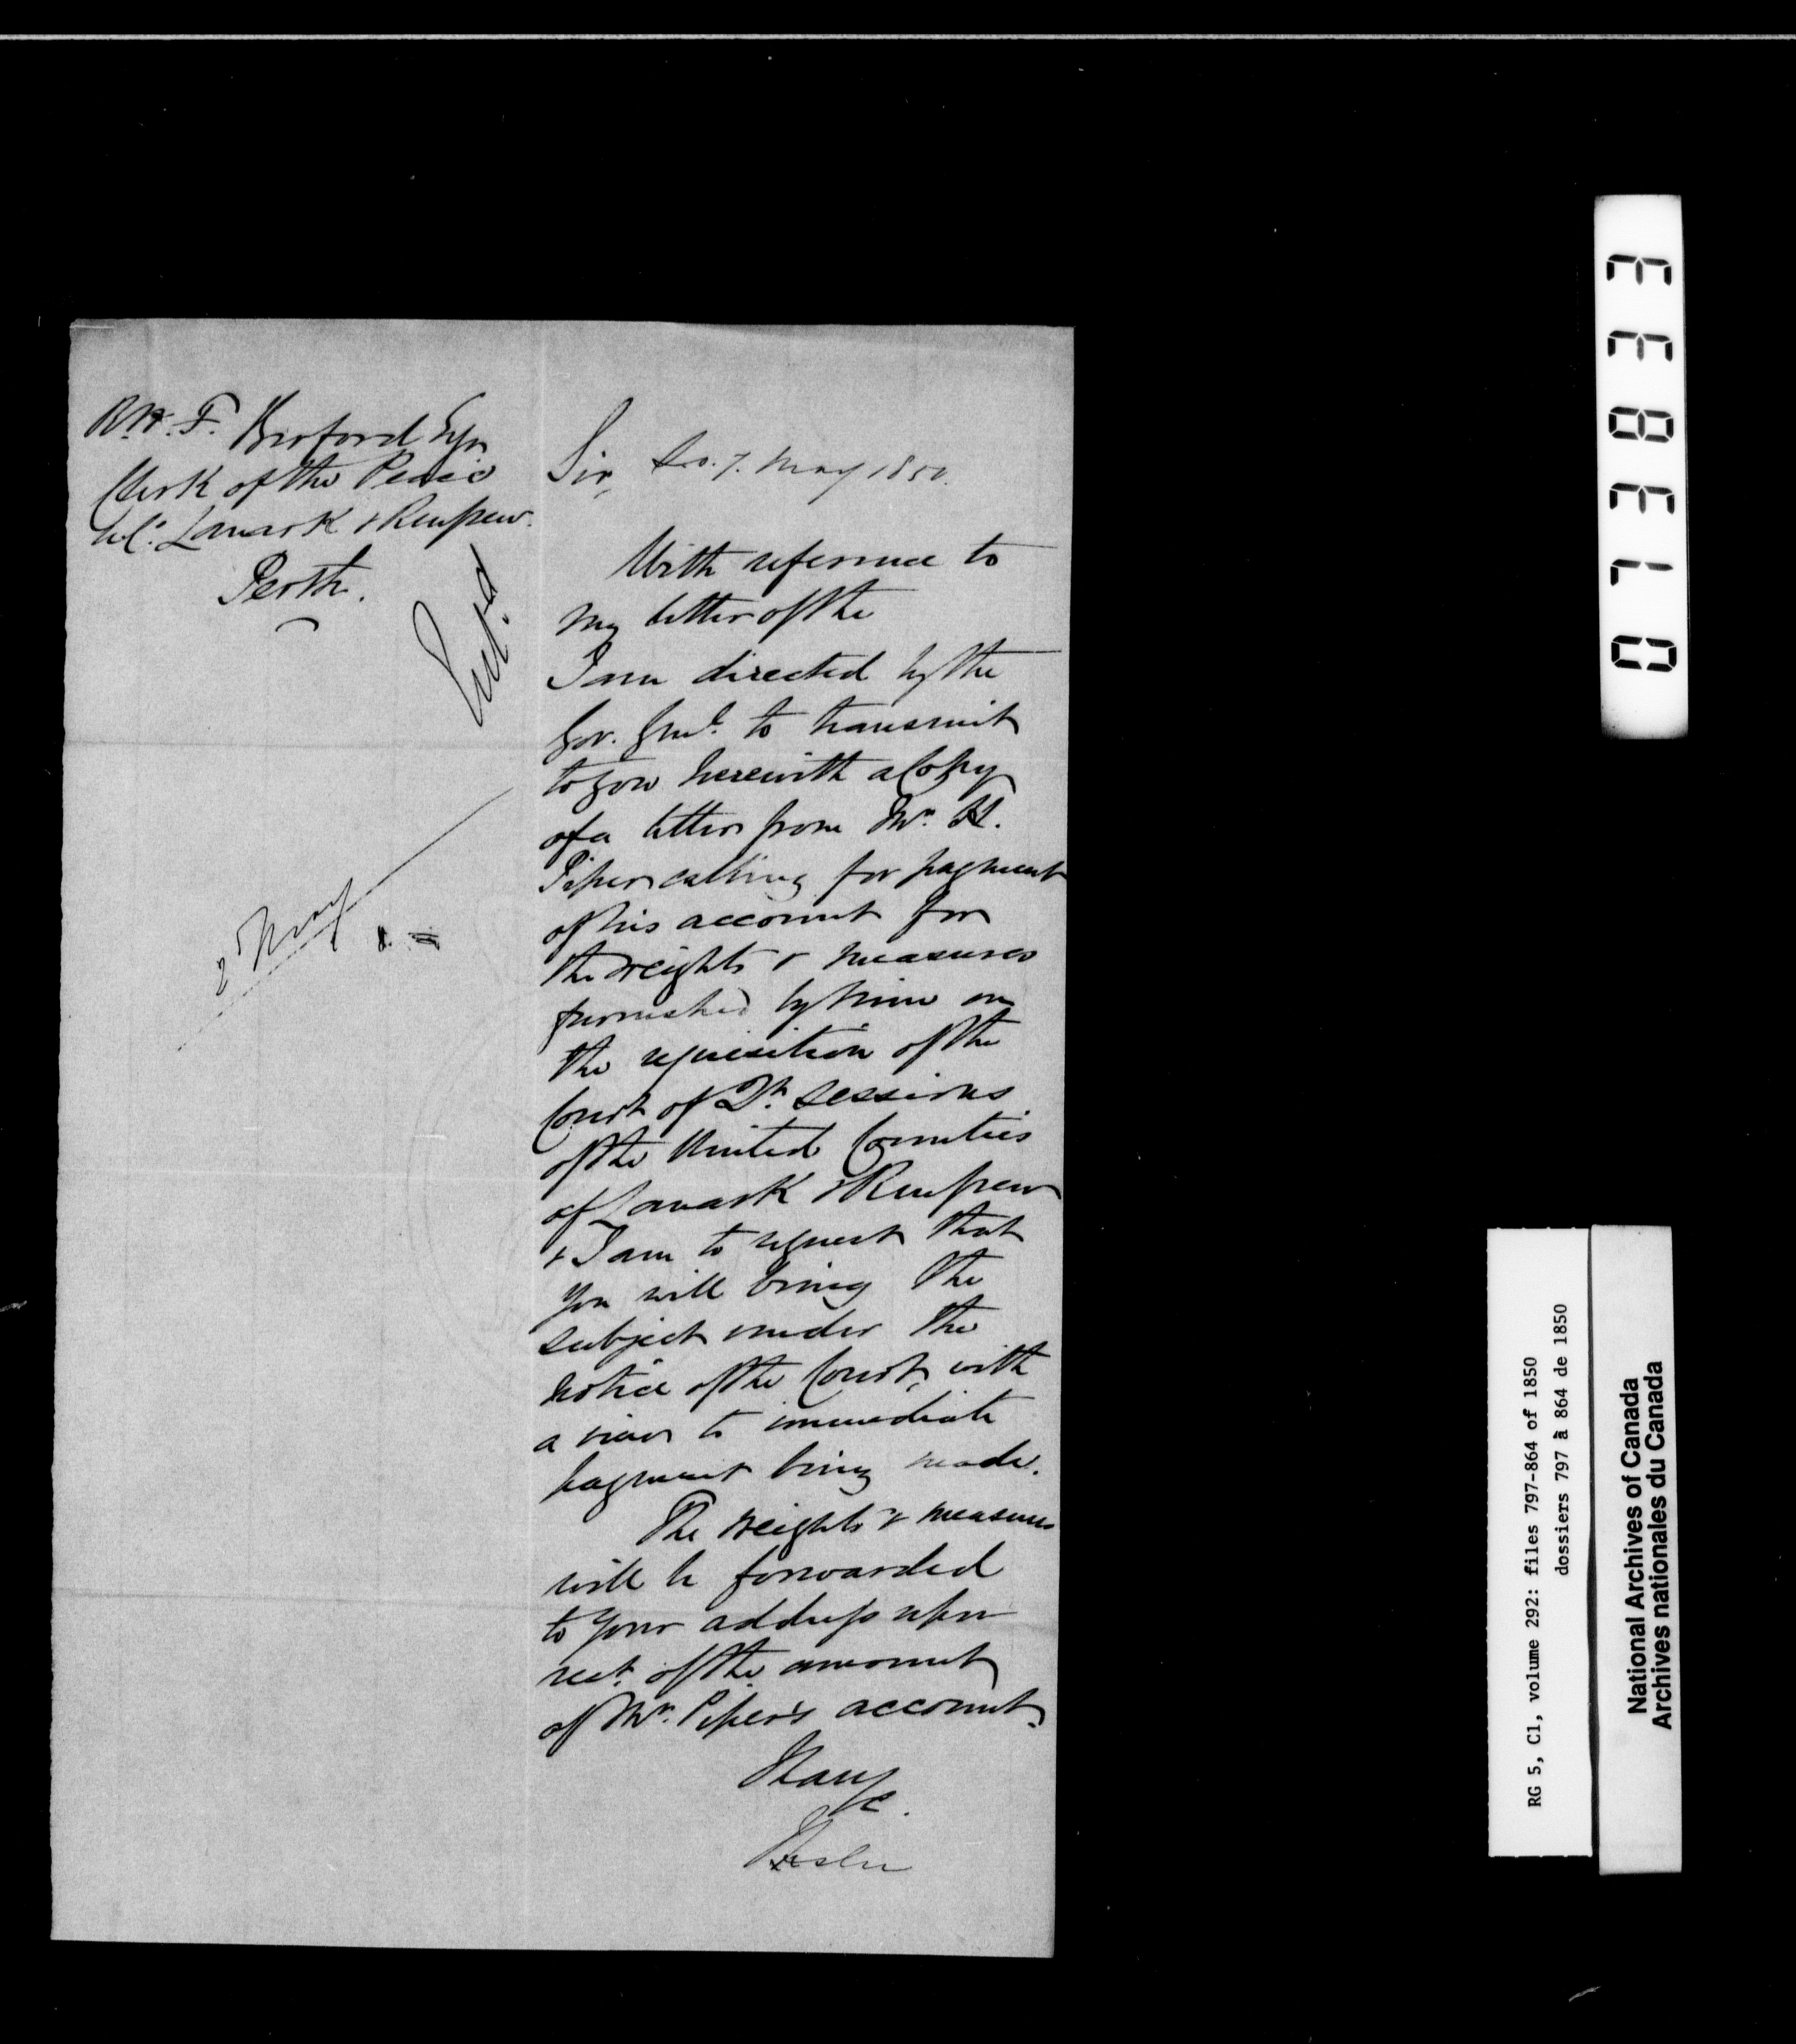 W. F. Berford Esqr
Clerk of the Peace
U.C. Lanark & Renfrew.
Perth.
Entd
2 May
Sir, 7. May 1850.
With reference to
my letter of the
I am directed by the
Gov. Genl. to transmit
to you herewith a Copy
of a letter from Mr. H.
Piper calling for payment
of his account for
the weights & measures
furnished by him on
the requisition of the
Court of Qr. Sessions
of the United Counties
of Lanark & Renfrew
& I am to request that
you will bring the
subject under the
notice of the Court, with
a view to immediate
payment being made.
The weights & measures
will be forwarded
to your address upon
rect. of the amount
of Mr. Piper's account.
I have
&c.
J Leslie
073833
RG 5, C1, volume 292: files 797-864 of 1850
dossiers 797 à 864 de 1850
National Archives of Canada
Archives nationales du Canada